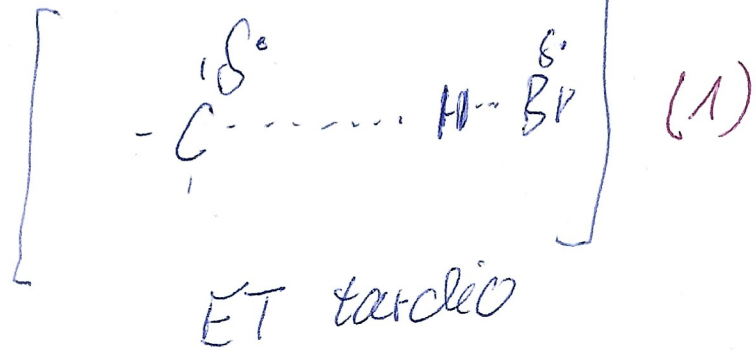 δ• δ•
- C ........ H -- Br (1)
ET tardio